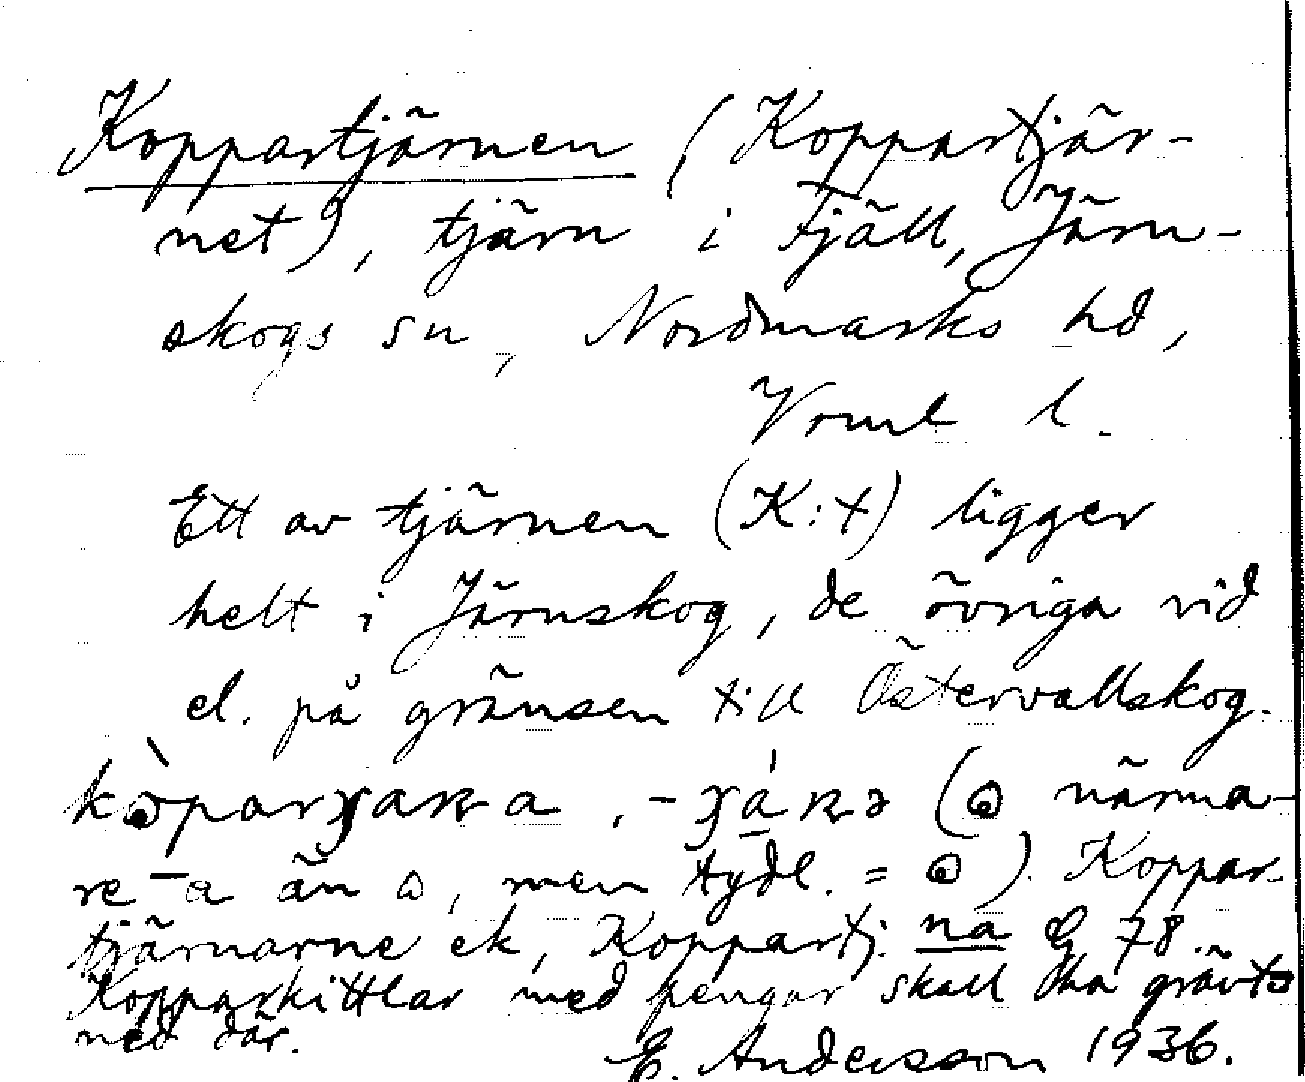 Koppartjärnen (Koppartjär-
net), tjärn i Fjäll, Järn-
skogs sn, Nordmarks hd,
Vrml l.
Ett av tjärnen (K:t) ligger
helt i Järnskog, de övriga vid
el. på gränsen till Östervallskog.
närma-
re a än , men tydl. = ). Koppar-
tjärnarne ek, Koppartj. na G 78.
Kopparkittlar med pengar skall ha grävts
ned där.
E. Andersson 1936.